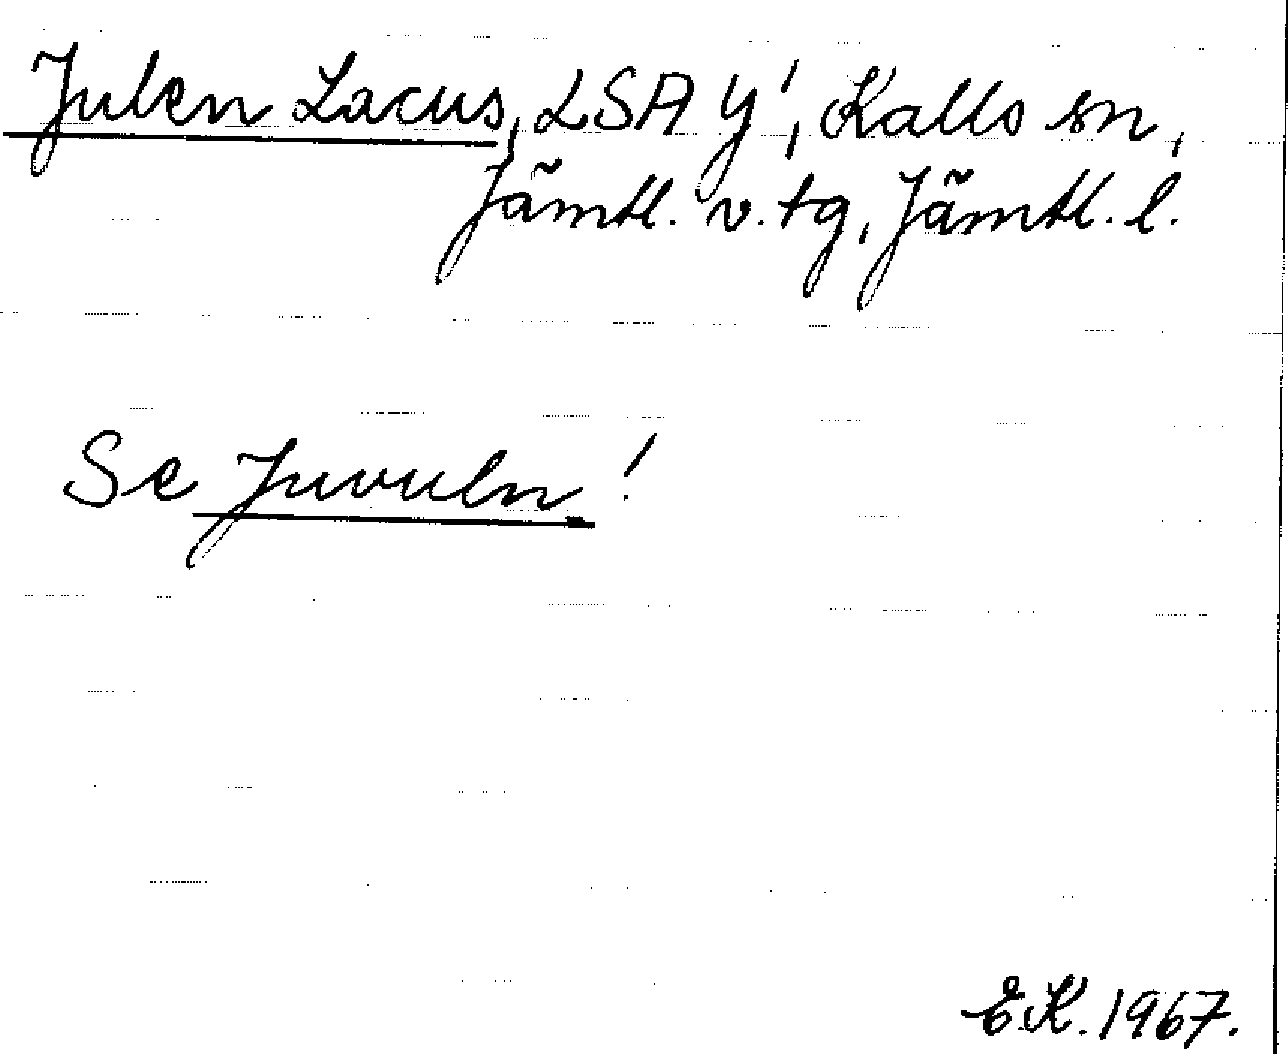 Julen Lacus, LSA Y', Kalls sn,
Jämtl. v. tg, Jämtl. l.
Se Juvuln!
E.K. 1967.